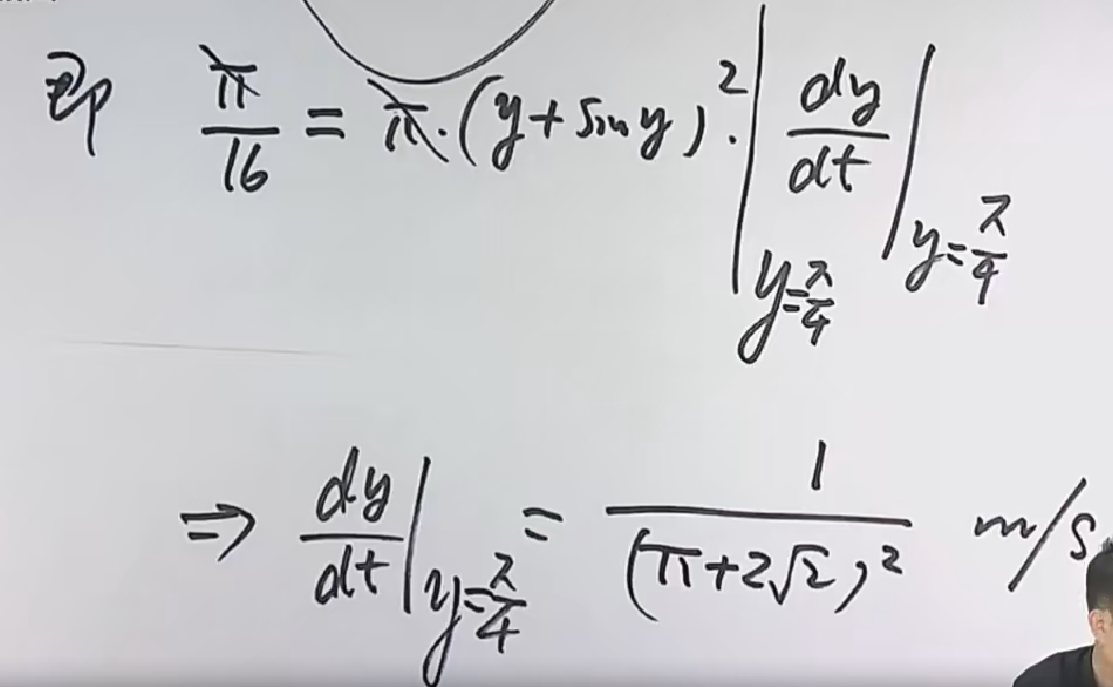 即 π/16 = π·(y+sin y)²·|_{y=π/4} dy/dt|_{y=π/4}
⇒ dy/dt|_{y=π/4} = 1/(π+2√2)² m/s